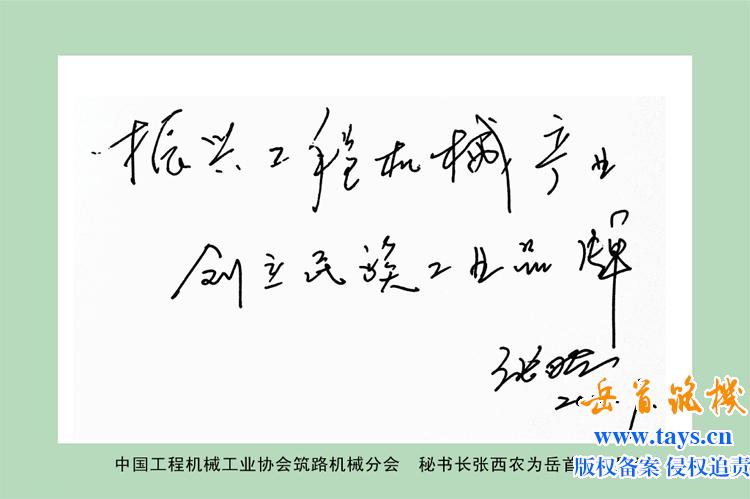 振兴工程机械产业
创立民族工业品牌
岳首筑機
www.tays.cn
版权备案 侵权追责
中国工程机械工业协会筑路机械分会 秘书长张西农为岳首